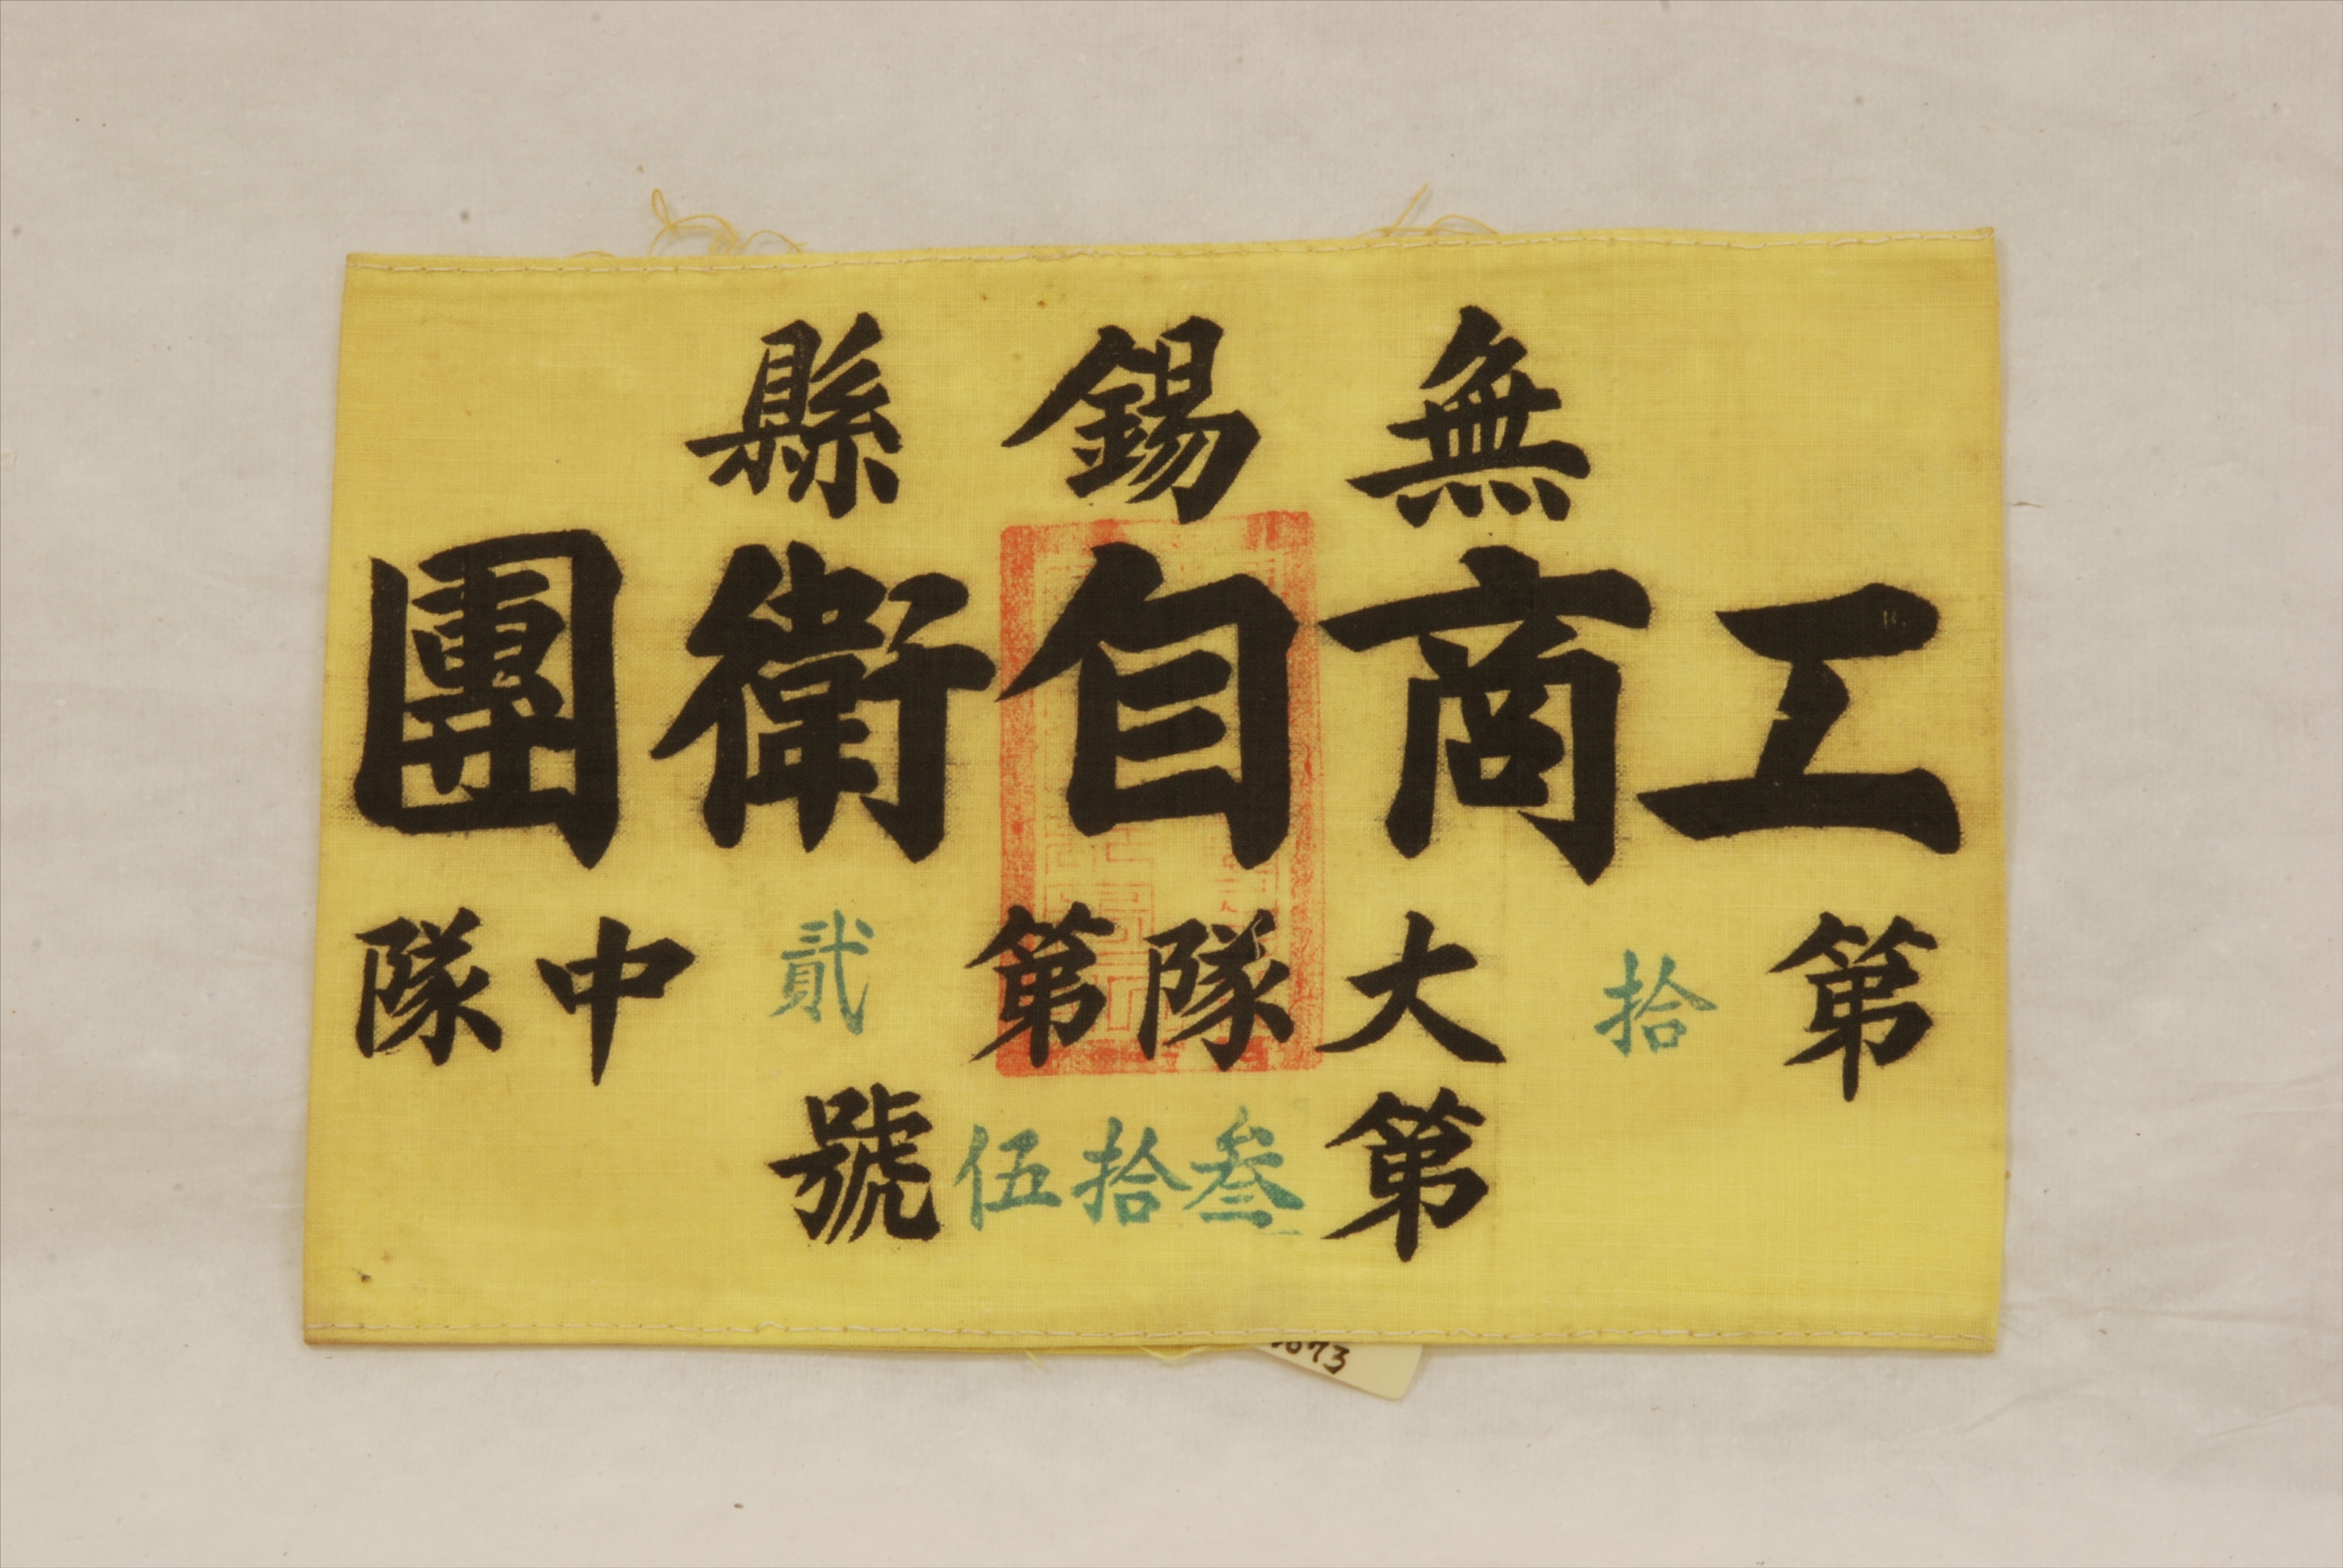 無錫縣
工商自衛團
第拾大隊第貳中隊
第叁拾伍號